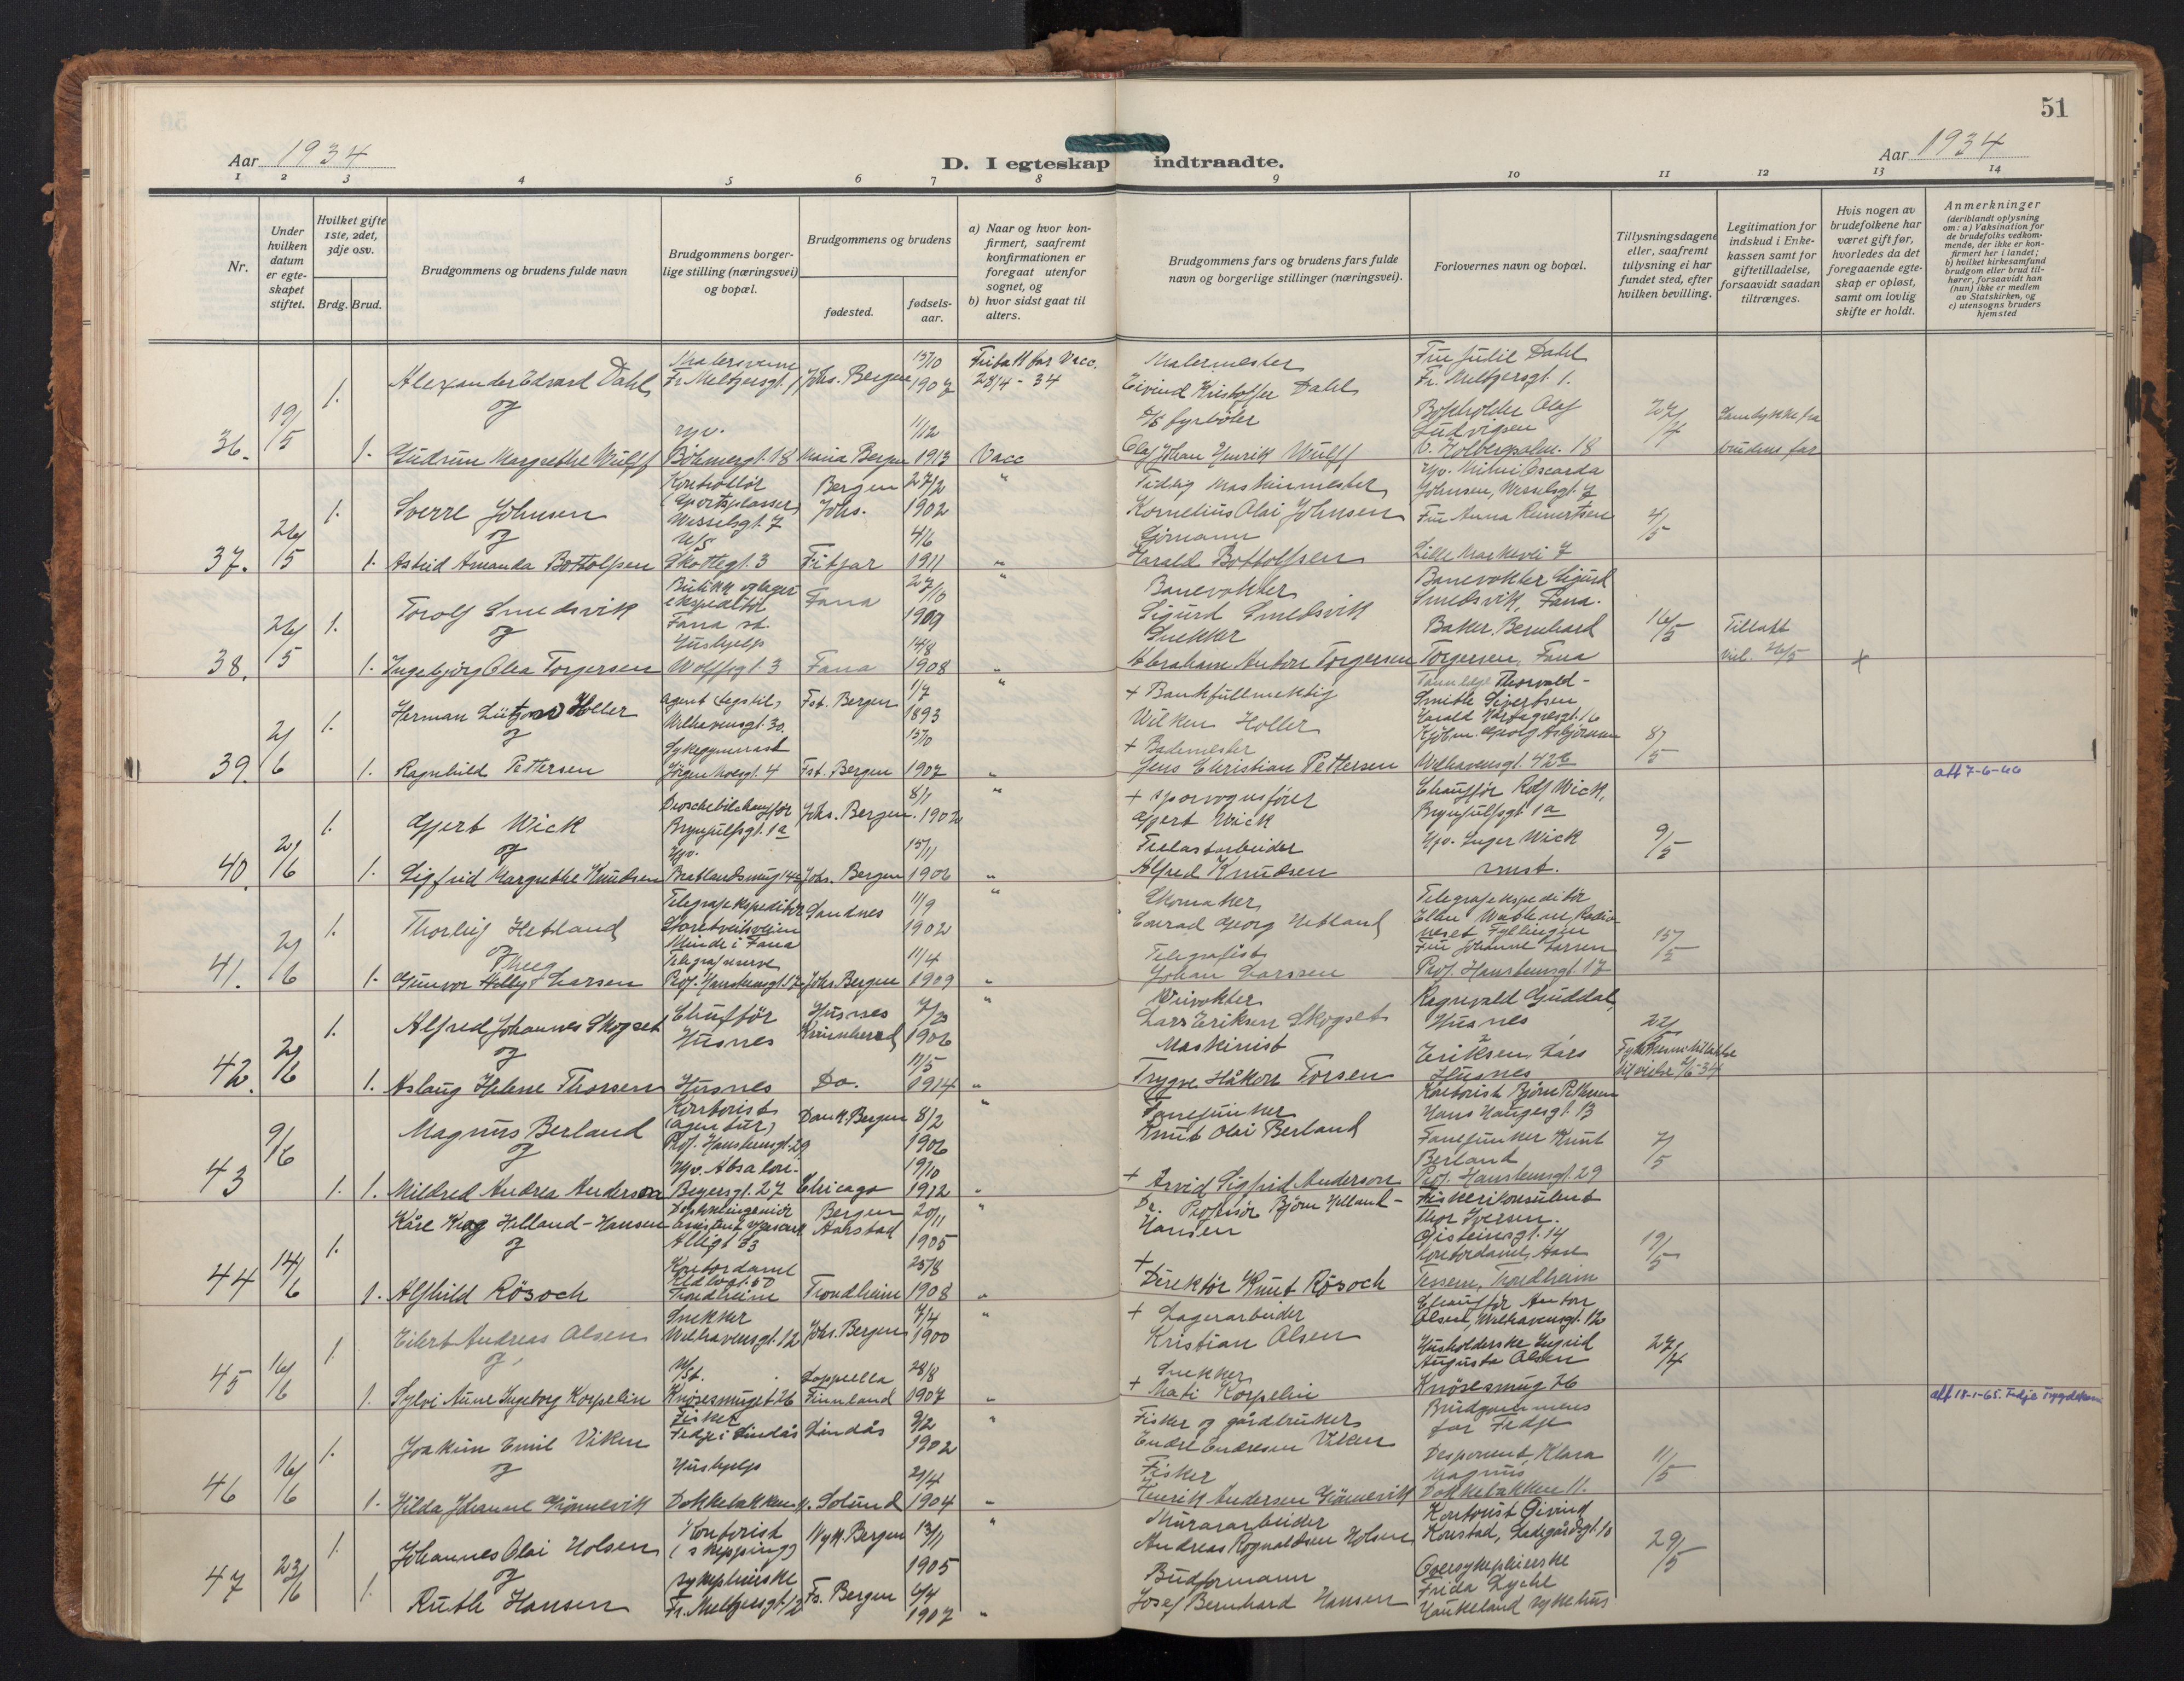 51
Aar 1934
D. I egteskap indtraadte.
Aar 1934
1 2 3 4 5 6 7 8 9 10 11 12 13 14
Nr.
Under hvilken datum er egteskapet stiftet.
Hvilket gifte 1ste, 2det, 3dje osv.
Brdg. Brud.
Brudgommens og brudens fulde navn
Brudgommens borgerlige stilling (næringsvei) og bopæl.
Brudgommens og brudens
fødested.
fødselsaar.
a) Naar og hvor konfirmert, saafremt konfirmationen er foregaat utenfor sognet, og
b) hvor sidst gaat til alters.
Brudgommens fars og brudens fars fulde navn og borgerlige stillinger (næringsvei).
Forlovernes navn og bopæl.
Tillysningsdagene eller, saafremt tillysning ei har fundet sted, efter hvilken bevilling.
Legitimation for indskud i Enkekassen samt for giftetilladelse, forsaavidt saadan tiltrænges.
Hvis nogen av brudefolkene har været gift før, hvorledes da det foregaaende egteskap er opløst, samt om lovlig skifte er holdt.
Anmerkninger
(deriblandt oplysning om: a) Vaksination for de brudefolks vedkommende, der ikke er konfirmert her i landet; b) hvilket kirkesamfund brudgom eller brud tilhører, forsaavidt han (hun) ikke er medlem av Statskirken, og c) utensogns bruders hjemsted
36. 19/5 1. Alexander Edvard Dahl Malersvenn Fr. Meltzersgt. 1 Johs. Bergen 15/10 1907 28/4-34 Malermester Eivind Kristoffer Dahl Fru Julie Dahl Fr. Meltzersgt. 1.
og
1. Gudrun Margrethe Wulff Böhmergt. 18 Maria Bergen 11/12 1913 Vacc D/S fyrböter Olaf Johan Henrik Wulff Bokholder Olaf Ludvigsen 18 27/4 Samtykke fra brudens far
37. 26/5 1. Sverre Johnsen Kontrollör (Sportsplassen) Wesselsgt. 7 Bergen Johs. 27/2 1902 " Maskinmester Kornelius Olai Johnsen Johnsen, Wesselsgt. 7
og
1. Astrid Amanda Bottolfsen Skottegt. 3 Fitjar 4/6 1911 " Sjömann Harald Bottolfsen Fru Anna Reinertsen Lille Markevei 7 4/5
38. 26/5 1. Torolf Smedsvik Butikk og lager ekspeditör Fana st. Fana 27/10 1907 " Banevokter Sigurd Smedsvik Banevokter Sigurd Smedsvik, Fana.
og
1. Ingebjörg Olea Torgersen Hushjelp Wolffsgt. 3 Fana 14/8 1908 " Snekker Abraham Anton Torgersen Baker Bernhard Torgersen, Fana 16/5 Tillatt 26/5
39. 2/6 1. Herman Lützow Holler Agent Welhavensgt. 30 Fst. Bergen 1/7 1893 " + Bankfullmektig Wilken Holler Tannlege Thorvald Smith Sivertsen Harald Hårfagresgt. 16
og
1. Ragnhild Pettersen Sykegymnast Jörgen Moesgt. 4 Fst. Bergen 15/10 1907 " + Bademester Jens Christian Pettersen Kjöbm. Georg Asbjörnsen Welhavensgt. 42 8/5 att 7-6-66
40. 2/6 1. Gjert Wick Droschebilchaufför Brynjulfsgt. 1a Johs. Bergen 8/1 1902 " + sporvognsförer Gjert Wick Chauffør Rolf Wick, Brynjulfsgt 1a
og
1. Sigfrid Margrethe Knudsen Johs. Bergen 15/11 1906 " Alfred Knudsen Inger Wick 9/5
41. 2/6 1. Thorleif Hetland Telegrafekspeditör Minde i Fana Sandnes 11/9 1902 " Skomaker Conrad Georg Hetland Telegrafekspeditör Fyllingen
og
1. Gunvor Larsen Prof. Hansteensgt. 17 Johs. Bergen 11/4 1909 " Telegrafist Johan Larssen Fru Johanne Larsen Prof. Hansteensgt. 17 15/5
42. 2/6 1. Alfred Johannes Skogset Chufför Husnes Husnes Kvinnherad 7/3 1906 " Veivokter Lars Eriksen Skogset Ragnvald Guddal, Husnes 22/5
og
1. Aslaug Helene Thorsen Husnes Do. 11/5 1914 " Maskinist Trygve Håkon Torsen Eriksen, Lars Husnes
43 9/6 1. Magnus Berland Kontorist (agentur) Prof. Hansteensgt. 29 Domk. Bergen 8/2 1906 " Fanejunker Knut Olai Berland Kontorist Björn Pettersen Hans Haugesgt. 13
og
1. Mildred Andrea Anderson Absalon Beyersgt. 27 Chicago 19/10 1912 " + Arvid Sigfrid Anderson Fanejunker Knut Berland Prof. Hansteensgt. 29 7/5
44 14/6 1. Kåre Krag Helland-Hansen Bergen Aarstad 20/11 1905 " Dr. Professör Björn Helland-Hansen Fiskerikonsulent Thor Iversen. Øisteinsgt. 14
og
1. Alfhild Rösoch Kontordame Trondheim Trondheim 25/8 1908 " + Direktör Knut Rösoch Kontordame Aase Tessem, Trondheim 19/5
45 16/6 1. Eilert Andreas Olsen Snekker Welhavensgt. 12 Johs. Bergen 7/4 1900 " + Lagerarbeider Kristian Olsen Chauffør Anton Olsen, Welhavensgt. 12
og
1. Sylvi Aune Ingeborg Korpelin Knösesmuget 26 Finnland 28/8 1907 " Snekker + Mati Korpelin Husholderske Ingrid Augusta Olsen Knösesmug 26 27/4 att 18-1-65. Fedje
46 16/6 1. Joakim Emil Viken Fisker Fedje i Lindås Lindås 9/2 1902 " Fisker og gårdbruker Endre Endresen Viken Brudgommens far Fedje
og
1. Hilda Johanne Grönnevik Hushjelp Dokkebakken 11. Solund 21/4 1904 " Fisker Henrik Andersen Grönnevik Klara Magnus Dokkebakken 11. 11/5
47 23/6 1. Johannes Olai Holsen Kontorist (skipping) Nyk. Bergen 13/11 1905 " Murararbeider Andreas Rognaldsen Holsen Kontorist Øivind Korstad, Ladegårdsgt. 10
og
1. Ruth Hansen sykepleierske Fr. Meltzersgt. 12 Fs. Bergen 6/4 1907 " Budformann Josef Bernhard Hansen Oversykepleierske Frida Haukeland sykehus 29/5